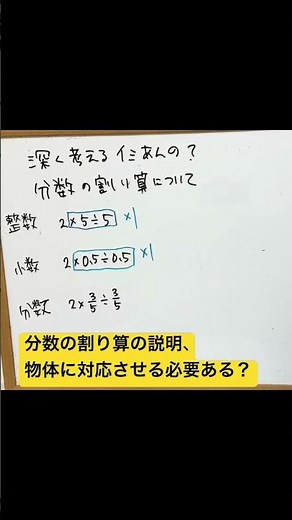 深く考えるイミあんの？
分数の割り算について
整数 2×5÷5 ×1
小数 2×0.5÷0.5 ×1
分数 2×3/5÷3/5
分数の割り算の説明、
物体に対応させる必要ある？